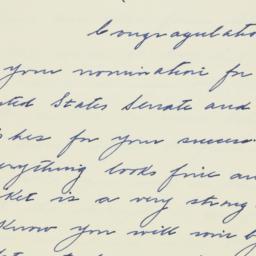 Congragulatio
your nomination for
ted States Senate and
hes for your success
erything looks fine an
ket is a very strong
know you will win b